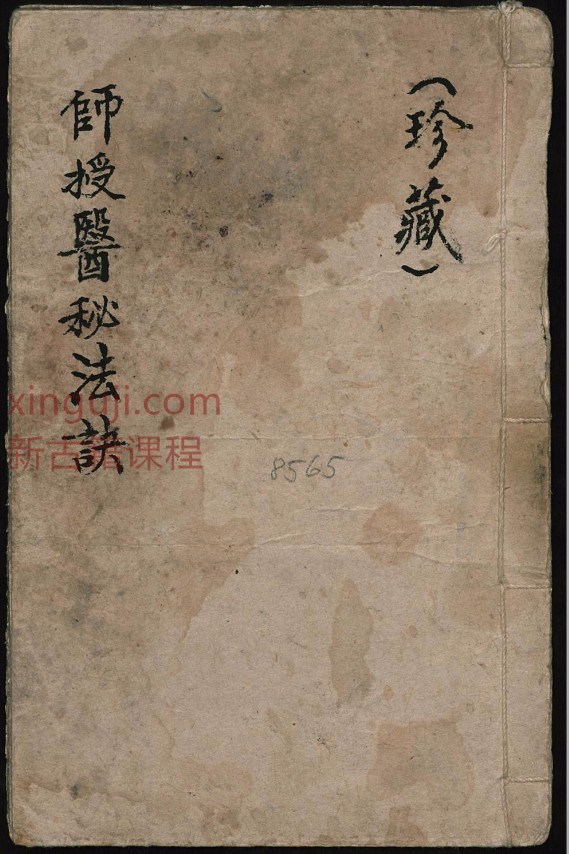 （珍藏）
師授醫秘法訣
8565
xinguji.com
新古籍课程